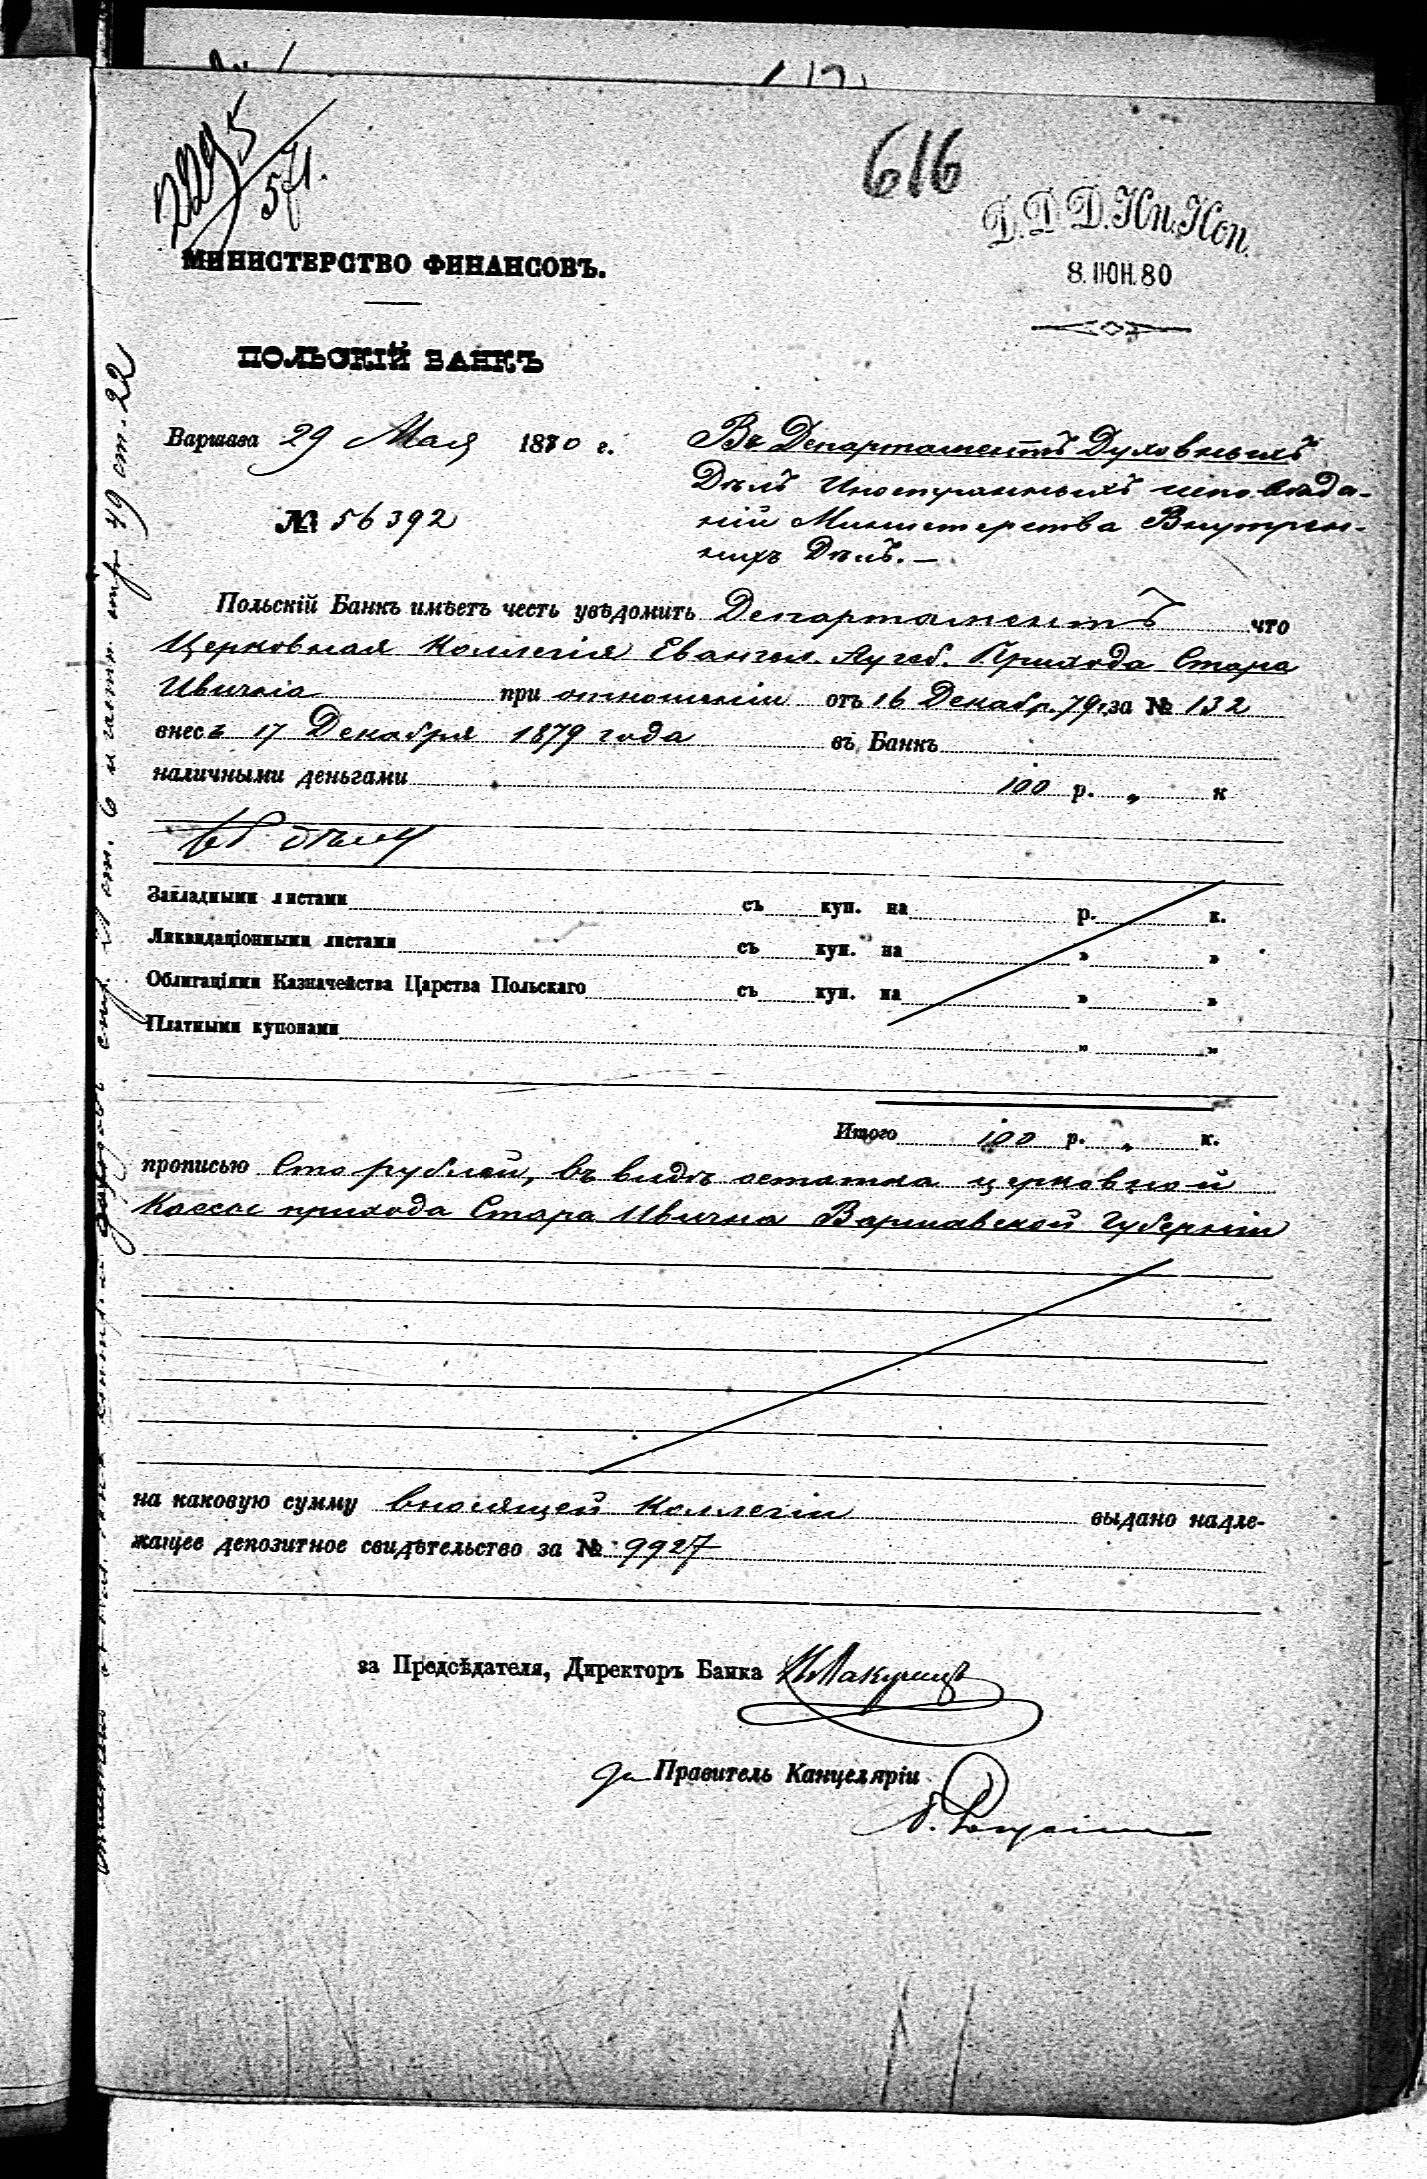 2295
571.
616
Д. Д. Д. Ин. Исп.
8. ІЮН. 80
МИНИСТЕРСТВО ФИНАНСОВЪ.
ПОЛЬСКІЙ БАНКЪ
Варшава 29 Мая 1880 г.
№ 56392
Въ Департаментъ Духовныхъ
Дѣлъ Иностранныхъ исповѣда-
ній Министерства Внутрен-
нихъ Дѣлъ.—
Польскій Банкъ имѣетъ честь увѣдомить Департаментъ что
Церковная Коллегія Евангел. Аугсб. Прихода Стара
Ивична при отношеніи отъ 16 Декабр. 79 г. за № 132
внесъ 17 Декабря 1879 года въ Банкъ
наличными деньгами 100 р. „ к
къ дѣлу
Закладными листами съ куп. на р. к.
Ликвидаціонными листами съ куп. на „ „
Облигаціями Казначейства Царства Польскаго съ куп. на „ „
Платными купонами „ „
Итого 100 р. „ к.
прописью Сто рублей, въ видѣ остатка церковной
Кассы прихода Стара Ивична Варшавской Губерніи
на каковую сумму вносящей Коллегіи выдано надле-
жащее депозитное свидѣтельство за № 9927
за Предсѣдателя, Директоръ Банка
за Правитель Канцеляріи
49 ст. 22